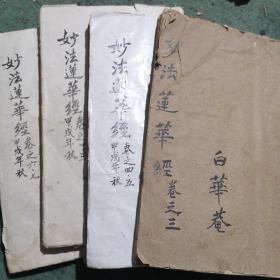 妙法蓮華經
卷之三
白華菴
妙法蓮華經
卷之四·五
甲戌年秋
妙法蓮華經
甲戌年秋
妙法蓮華經
卷之六·
甲戌年秋